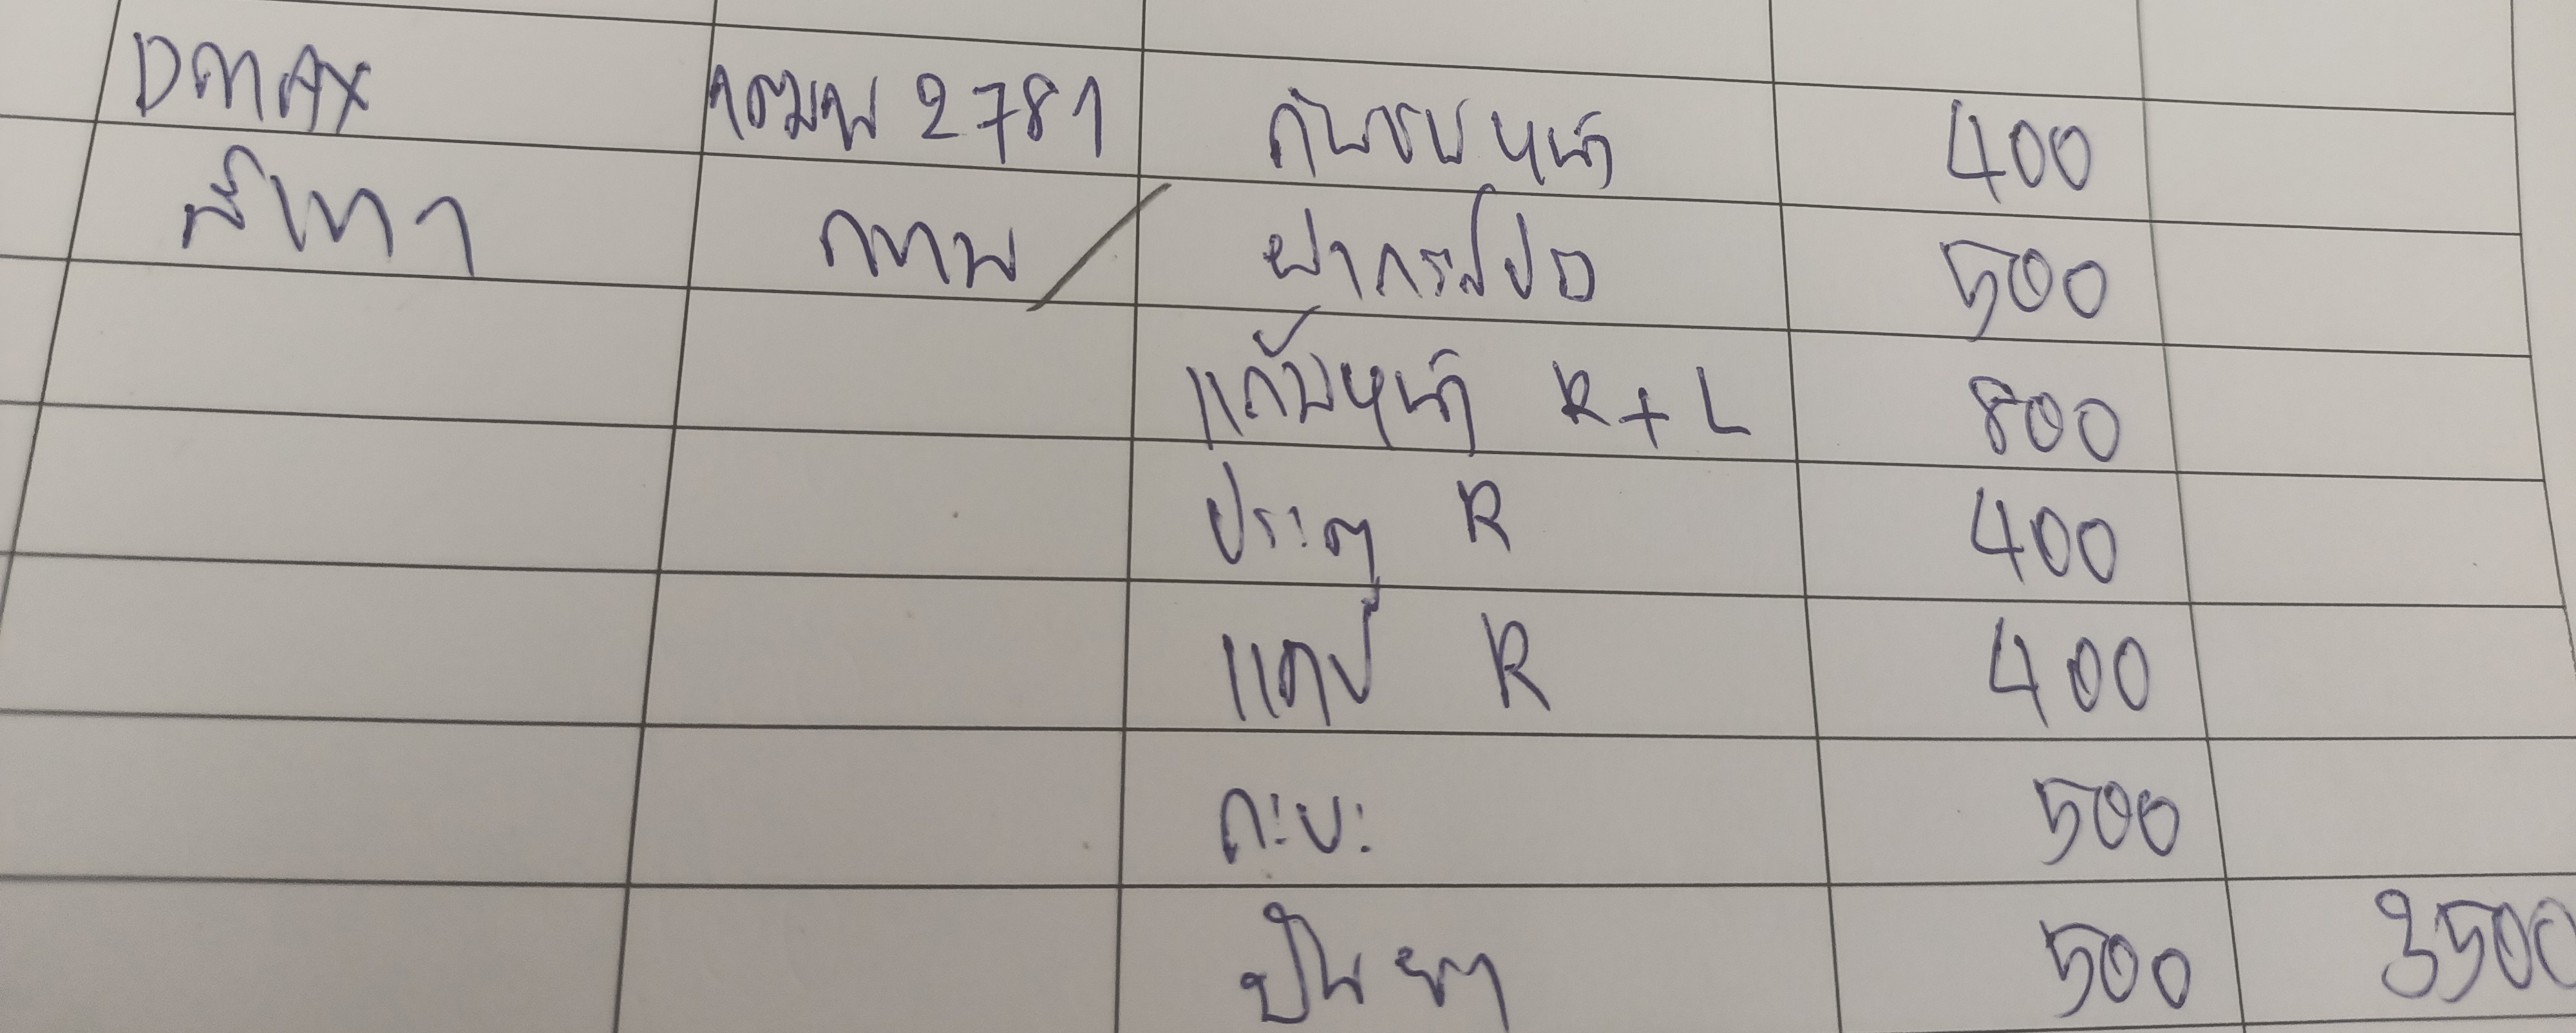 DMAX 1ฒพ 2781 กันชนหน้า 400
สีเทา กทม / ฝากระโปรง 500
แก้มหน้า R + L 800
ประตู R 400
แคป R 400
กะบะ 500
ปั่นยา 500 3500